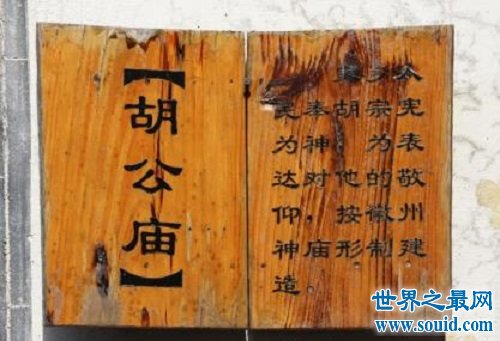 【胡公庙】
民奉胡宗宪
为神，为表
达对他的敬
仰，按徽州
神庙形制建
造
世界之最网
www.souid.com